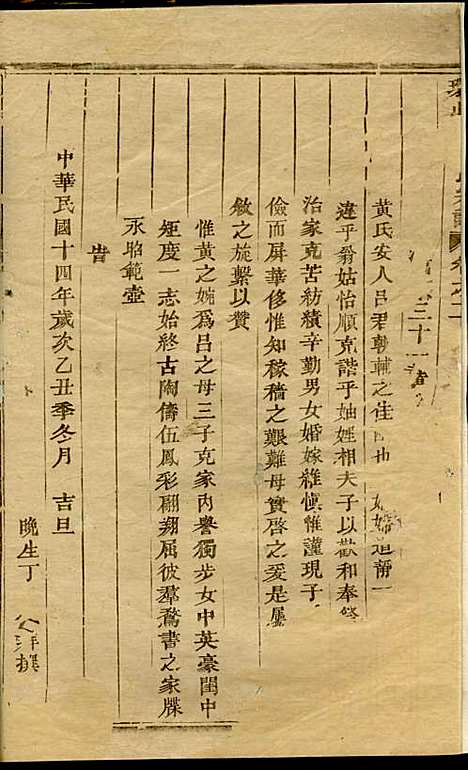 三十一
黄氏安人吕君朝輔之佳 婦道靜一
違乎翁姑怡順克諧乎妯娌相夫子以歡和奉
治家克苦紡績辛勤男女婚嫁維慎惟謹現子
儉而屏華侈惟知稼穡之艱難母實啓之爰是屬
敘之旋繫以贊
惟黄之婉爲吕之母三子克家内譽獨步女中英豪閨中
矩度一志始終古陶儔伍鳳彩翩翔屈彼羣鶩書之家牒
永昭範壼
旹
中華民國十四年歲次乙丑季冬月 吉旦
晚生丁 撰